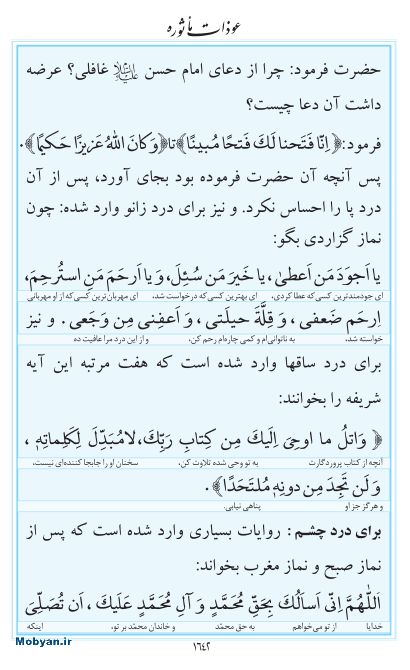 عوذات مأثوره
حضرت فرمود: چرا از دعای امام حسن علیه‌السلام غافلی؟ عرضه
داشت آن دعا چیست؟
فرمود: ﴿ اِنّا فَتَحنا لَكَ فَتحًا مُبينًا ﴾ تا ﴿ وَكانَ اللهُ عَزيزًا حَكيمًا ﴾.
پس آنچه آن حضرت فرموده بود بجای آورد، پس از آن
درد پا را احساس نکرد. و نیز برای درد زانو وارد شده: چون
نماز گزاردی بگو:
يا اَجوَدَ مَن اَعطىٰ، يا خَيرَ مَن سُئِلَ، وَ يا اَرحَمَ مَنِ استُرحِمَ،
ای جودمندترین کسی که عطا کردی، ای بهترین کسی که درخواست شد، ای مهربان‌ترین کسی که از او مهربانی
اِرحَم ضَعفى، وَ قِلَّةَ حيلَتى، وَ اَعفِنى مِن وَجَعى. و نیز
خواسته شد، به ناتوانی‌ام و کمی چاره‌ام رحم کن، و از این درد مرا عافیت ده
برای درد ساقها وارد شده است که هفت مرتبه این آیه
شریفه را بخوانند:
﴿ وَاتلُ ما اوحِىَ اِلَيكَ مِن كِتابِ رَبِّكَ، لامُبَدِّلَ لِكَلِماتِهٖ،
آنچه از کتاب پروردگارت به تو وحی شده تلاوت کن، سخنان او را جابجا کننده‌ای نیست،
وَ لَن تَجِدَ مِن دونِهٖ مُلتَحَدًا ﴾.
و هرگز جز او پناهی نیابی.
برای درد چشم: روایات بسیاری وارد شده است که پس از
نماز صبح و نماز مغرب بخواند:
اَللّٰهُمَّ اِنّى اَساَلُكَ بِحَقِّ مُحَمَّدٍ وَ آلِ مُحَمَّدٍ عَلَيكَ، اَن تُصَلِّىَ
خدایا از تو می‌خواهم به حق محمّد و خاندان محمّد بر تو، اینکه
۱۶۴۲
Mobyan.ir